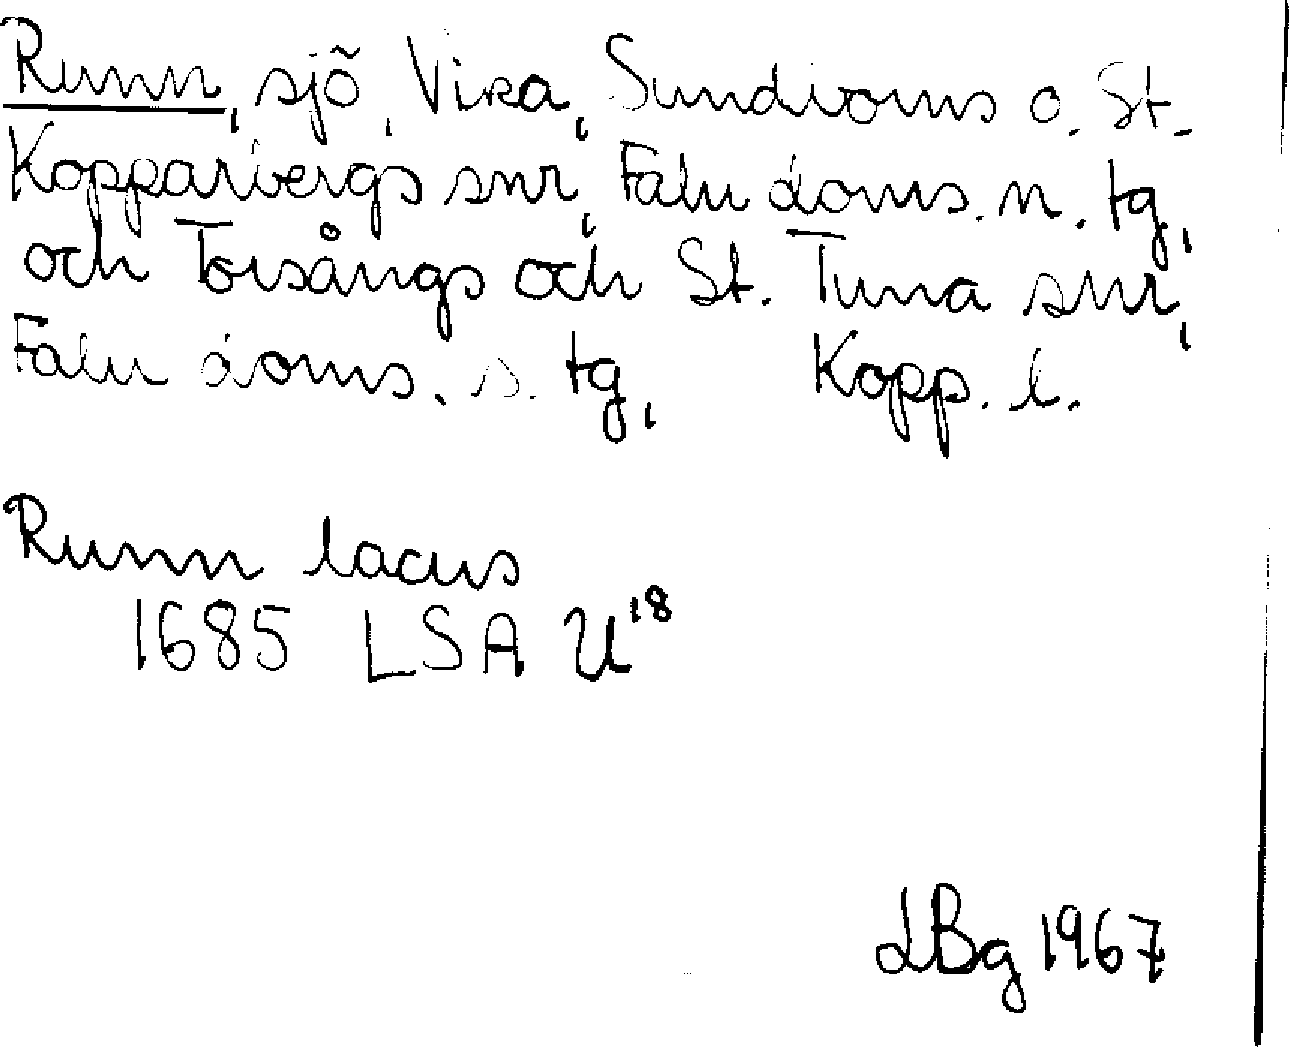 Runn, sjö, Vika, Sundborns o. St.
Kopparbergs snr, Falu doms. n. tg,
och Torsångs och St. Tuna snr,
Falu doms. s. tg, Kopp. l.
Runn lacus
1685 LSA U18
LBg 1967